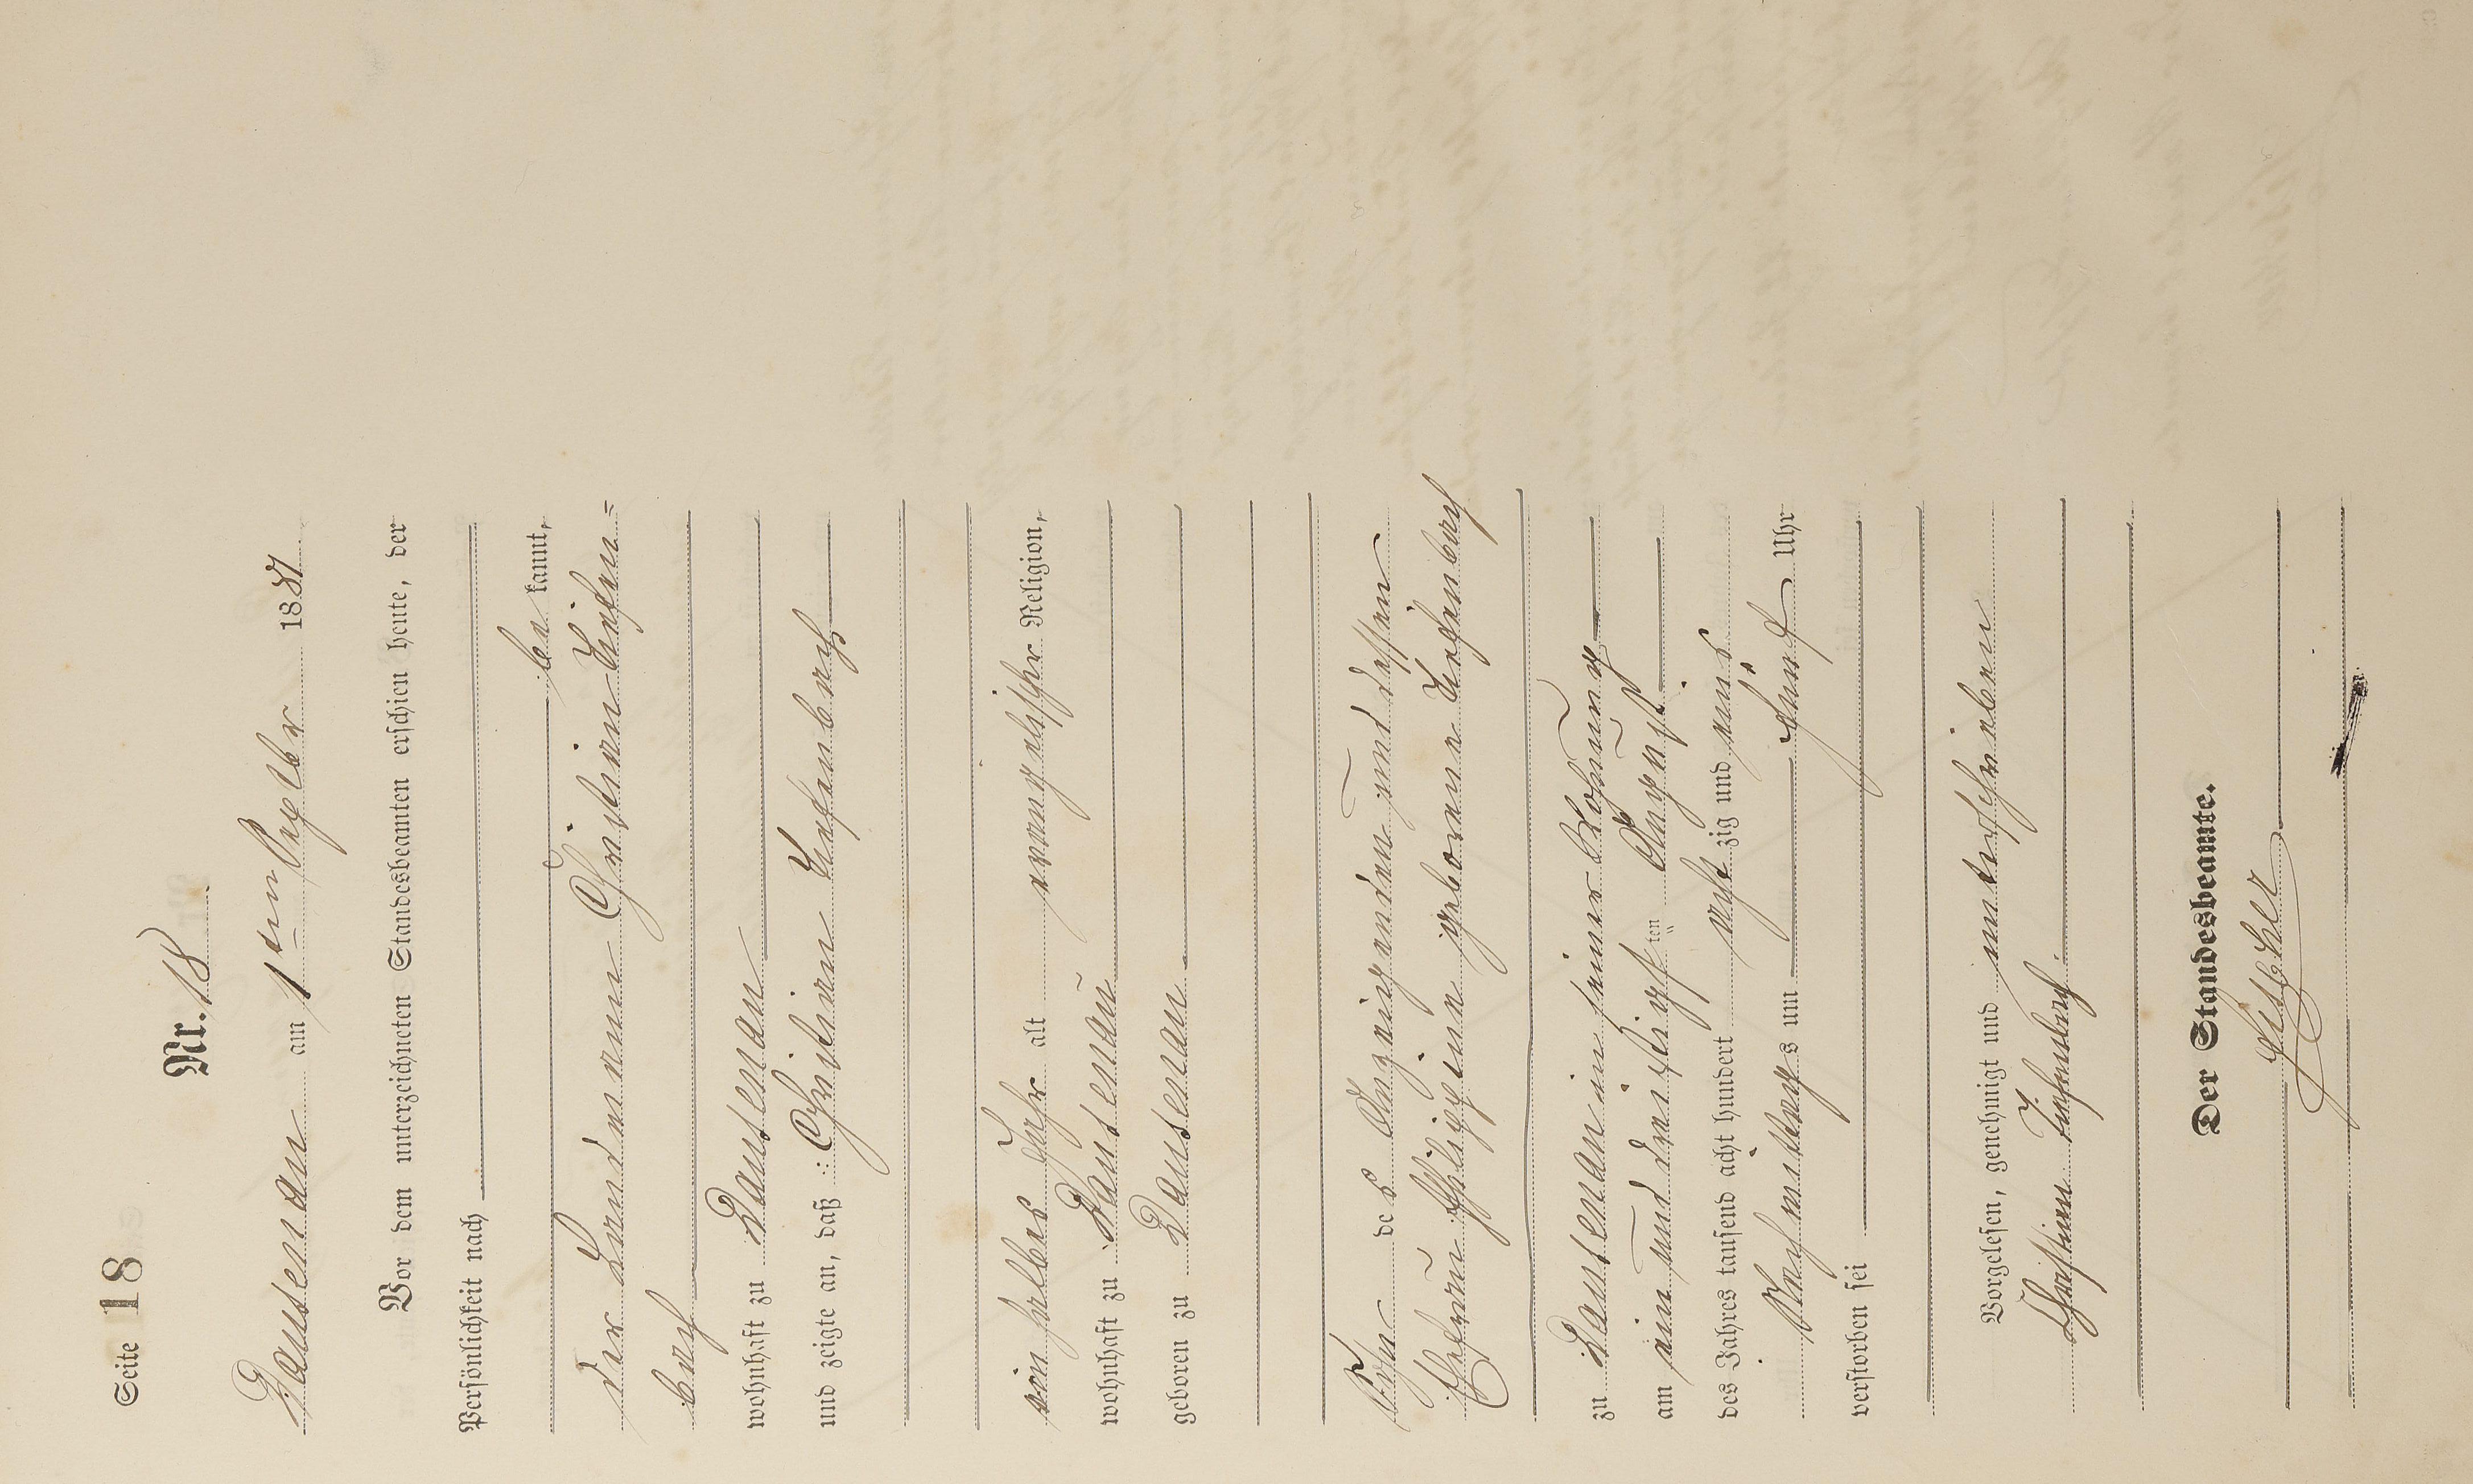 Seite 18
Nr. 18
Dausenau am 1ten Septbr 1881
Vor dem unterzeichneten Standesbeamten erschien heute, der
Persönlichkeit nach
be kannt,
der Landmann Christian Tiefen=
bach
wohnhaft zu Dausenau
und zeigte an, daß Christian Tiefenbach
ein halbes Jahr alt evangelischer Religion,
wohnhaft zu Dausenau
geboren zu Dausenau
Sohn des Anzeigenden und dessen
Ehefrau Philippine geborene Tiefenbach
zu Dausenau in seiner Wohnung
am ein und dreißigsten August
des Jahres tausend acht hundert acht zig und eins
Nachmittags um fünf Uhr
verstorben sei
Vorgelesen, genehmigt und unterschrieben
Christian Tiefenbach
Der Standesbeamte.